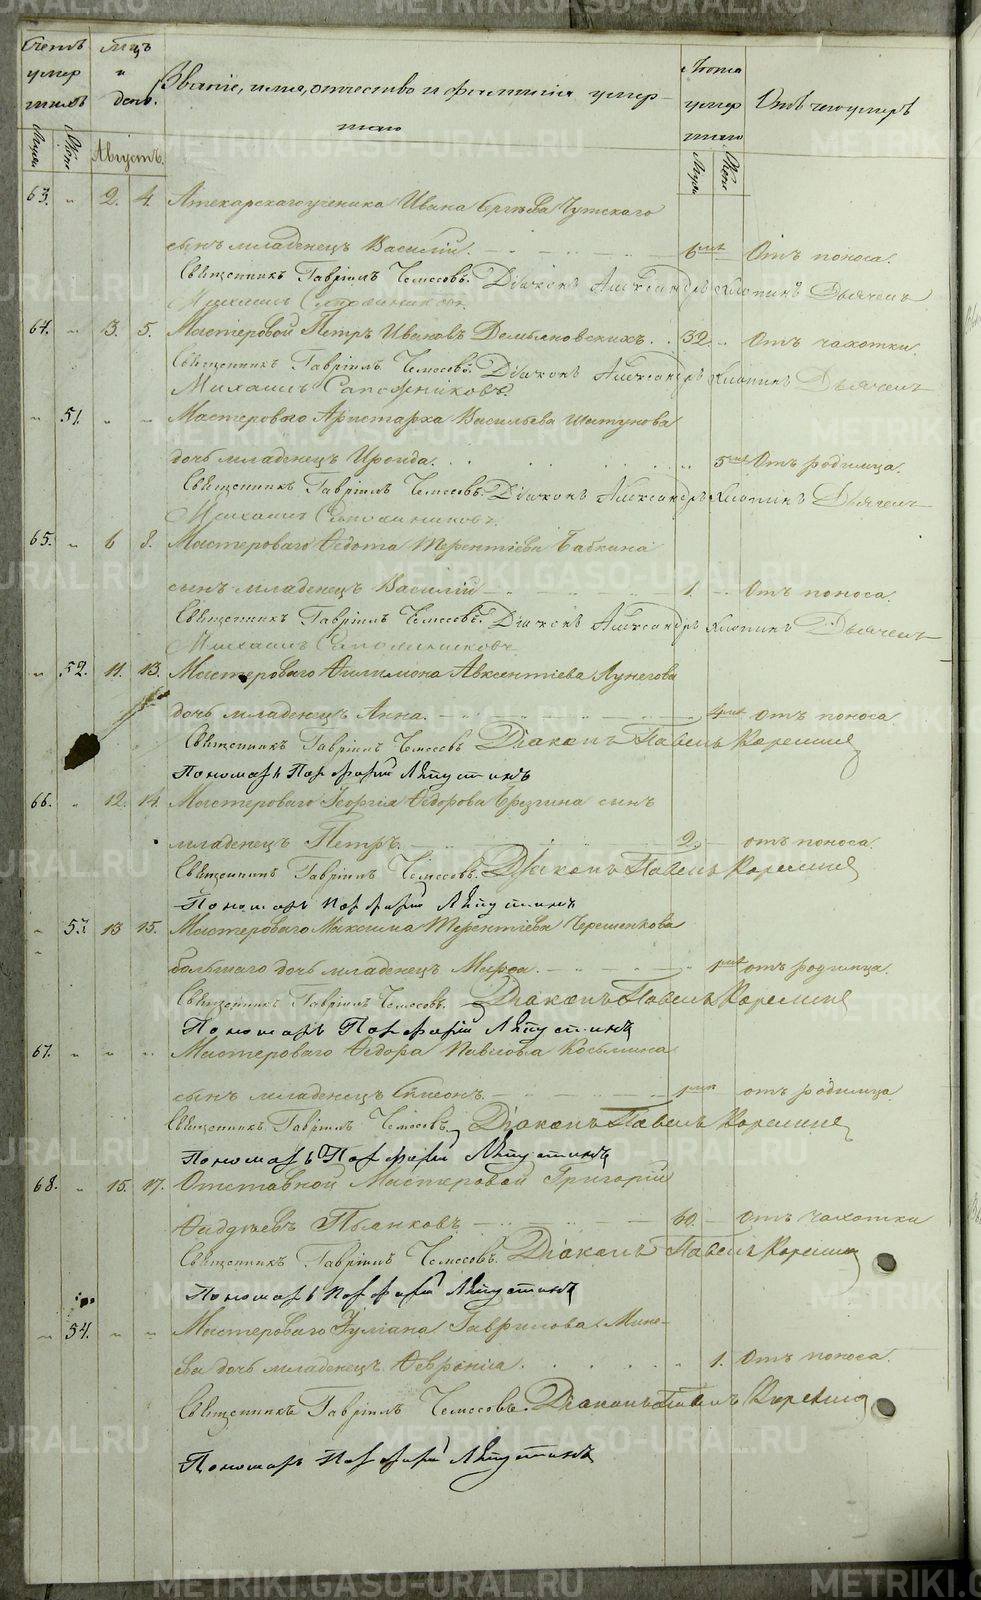 METRIKI.GASO-URAL.RU
Счетъ умершихъ Мужес. Женс.
Мѣс. и день. Августъ.
Званіе, имя, отчество и фамилія умершаго
Лѣта умершаго Муж. Женс.
Отъ чего умеръ
63. „ 2. 4. Аптекарскаго ученика Ивана
сынъ младенецъ Василій. 6 мѣс. Отъ поноса.
Священникъ Гавріилъ Чемесовъ. Діаконъ Александръ Клопинъ Дьячекъ
Михаилъ Сапожниковъ.
64. „ 3. 5. Мастеровой Петръ Ивановъ Демьяновскихъ. 32. Отъ чахотки.
Священникъ Гавріилъ Чемесовъ. Діаконъ Александръ Клопинъ Дьячекъ
Михаилъ Сапожниковъ.
„ 51. „ „ Мастероваго Аристарха Васильева Шистунова
дочь младенецъ Ироида. 5 мѣс. Отъ родимца.
Священникъ Гавріилъ Чемесовъ. Діаконъ Александръ Клопинъ Дьячекъ
Михаилъ Сапожниковъ.
65. „ 6 8. Мастероваго Ѳедота Терентіева Бабкина
сынъ младенецъ Василій 1. Отъ поноса.
Священникъ Гавріилъ Чемесовъ. Діаконъ Александръ Клопинъ Дьячекъ
Михаилъ Сапожниковъ.
„ 52. 11. 13. Мастероваго Филимона Авксентіева Лунегова
дочь младенецъ Анна. 4 мѣс. отъ поноса.
Священникъ Гавріилъ Чемесовъ Діаконъ Павелъ Корелинъ
Пономарь Порфирій Ляпустинъ
66. „ 12. 14. Мастероваго Георгія Ѳедорова Брязгина сынъ
младенецъ Петръ. 2. отъ поноса.
Священникъ Гавріилъ Чемесовъ. Діаконъ Павелъ Корелинъ
Пономарь Порфирій Ляпустинъ
„ 53. 13 15. Мастероваго Максима Терентіева Черепенкова
большаго дочь младенецъ Марѳа. 1 мѣс. отъ родимца.
Священникъ Гавріилъ Чемесовъ. Діаконъ Павелъ Корелинъ
Пономарь Порфирій Ляпустинъ
67. „ „ „ Мастероваго Ѳедора Павлова Косьмина
сынъ младенецъ Сѵмеонъ. 1 мѣс. отъ родимца
Священникъ Гавріилъ Чемесовъ. Діаконъ Павелъ Корелинъ
Пономарь Порфирій Ляпустинъ
68. „ 15. 17. Отставной Мастеровой Григорій
Ѳадѣевъ Пьянковъ 60. Отъ чахотки
Священникъ Гавріилъ Чемесовъ. Діаконъ Павелъ Корелинъ
Пономарь Порфирій Ляпустинъ
„ 54. „ „ Мастероваго Іуліана Гаврилова Мине-
ева дочь младенецъ Ѳевронія. 1. Отъ поноса.
Священникъ Гавріилъ Чемесовъ. Діаконъ Павелъ Корелинъ
Пономарь Порфирій Ляпустинъ